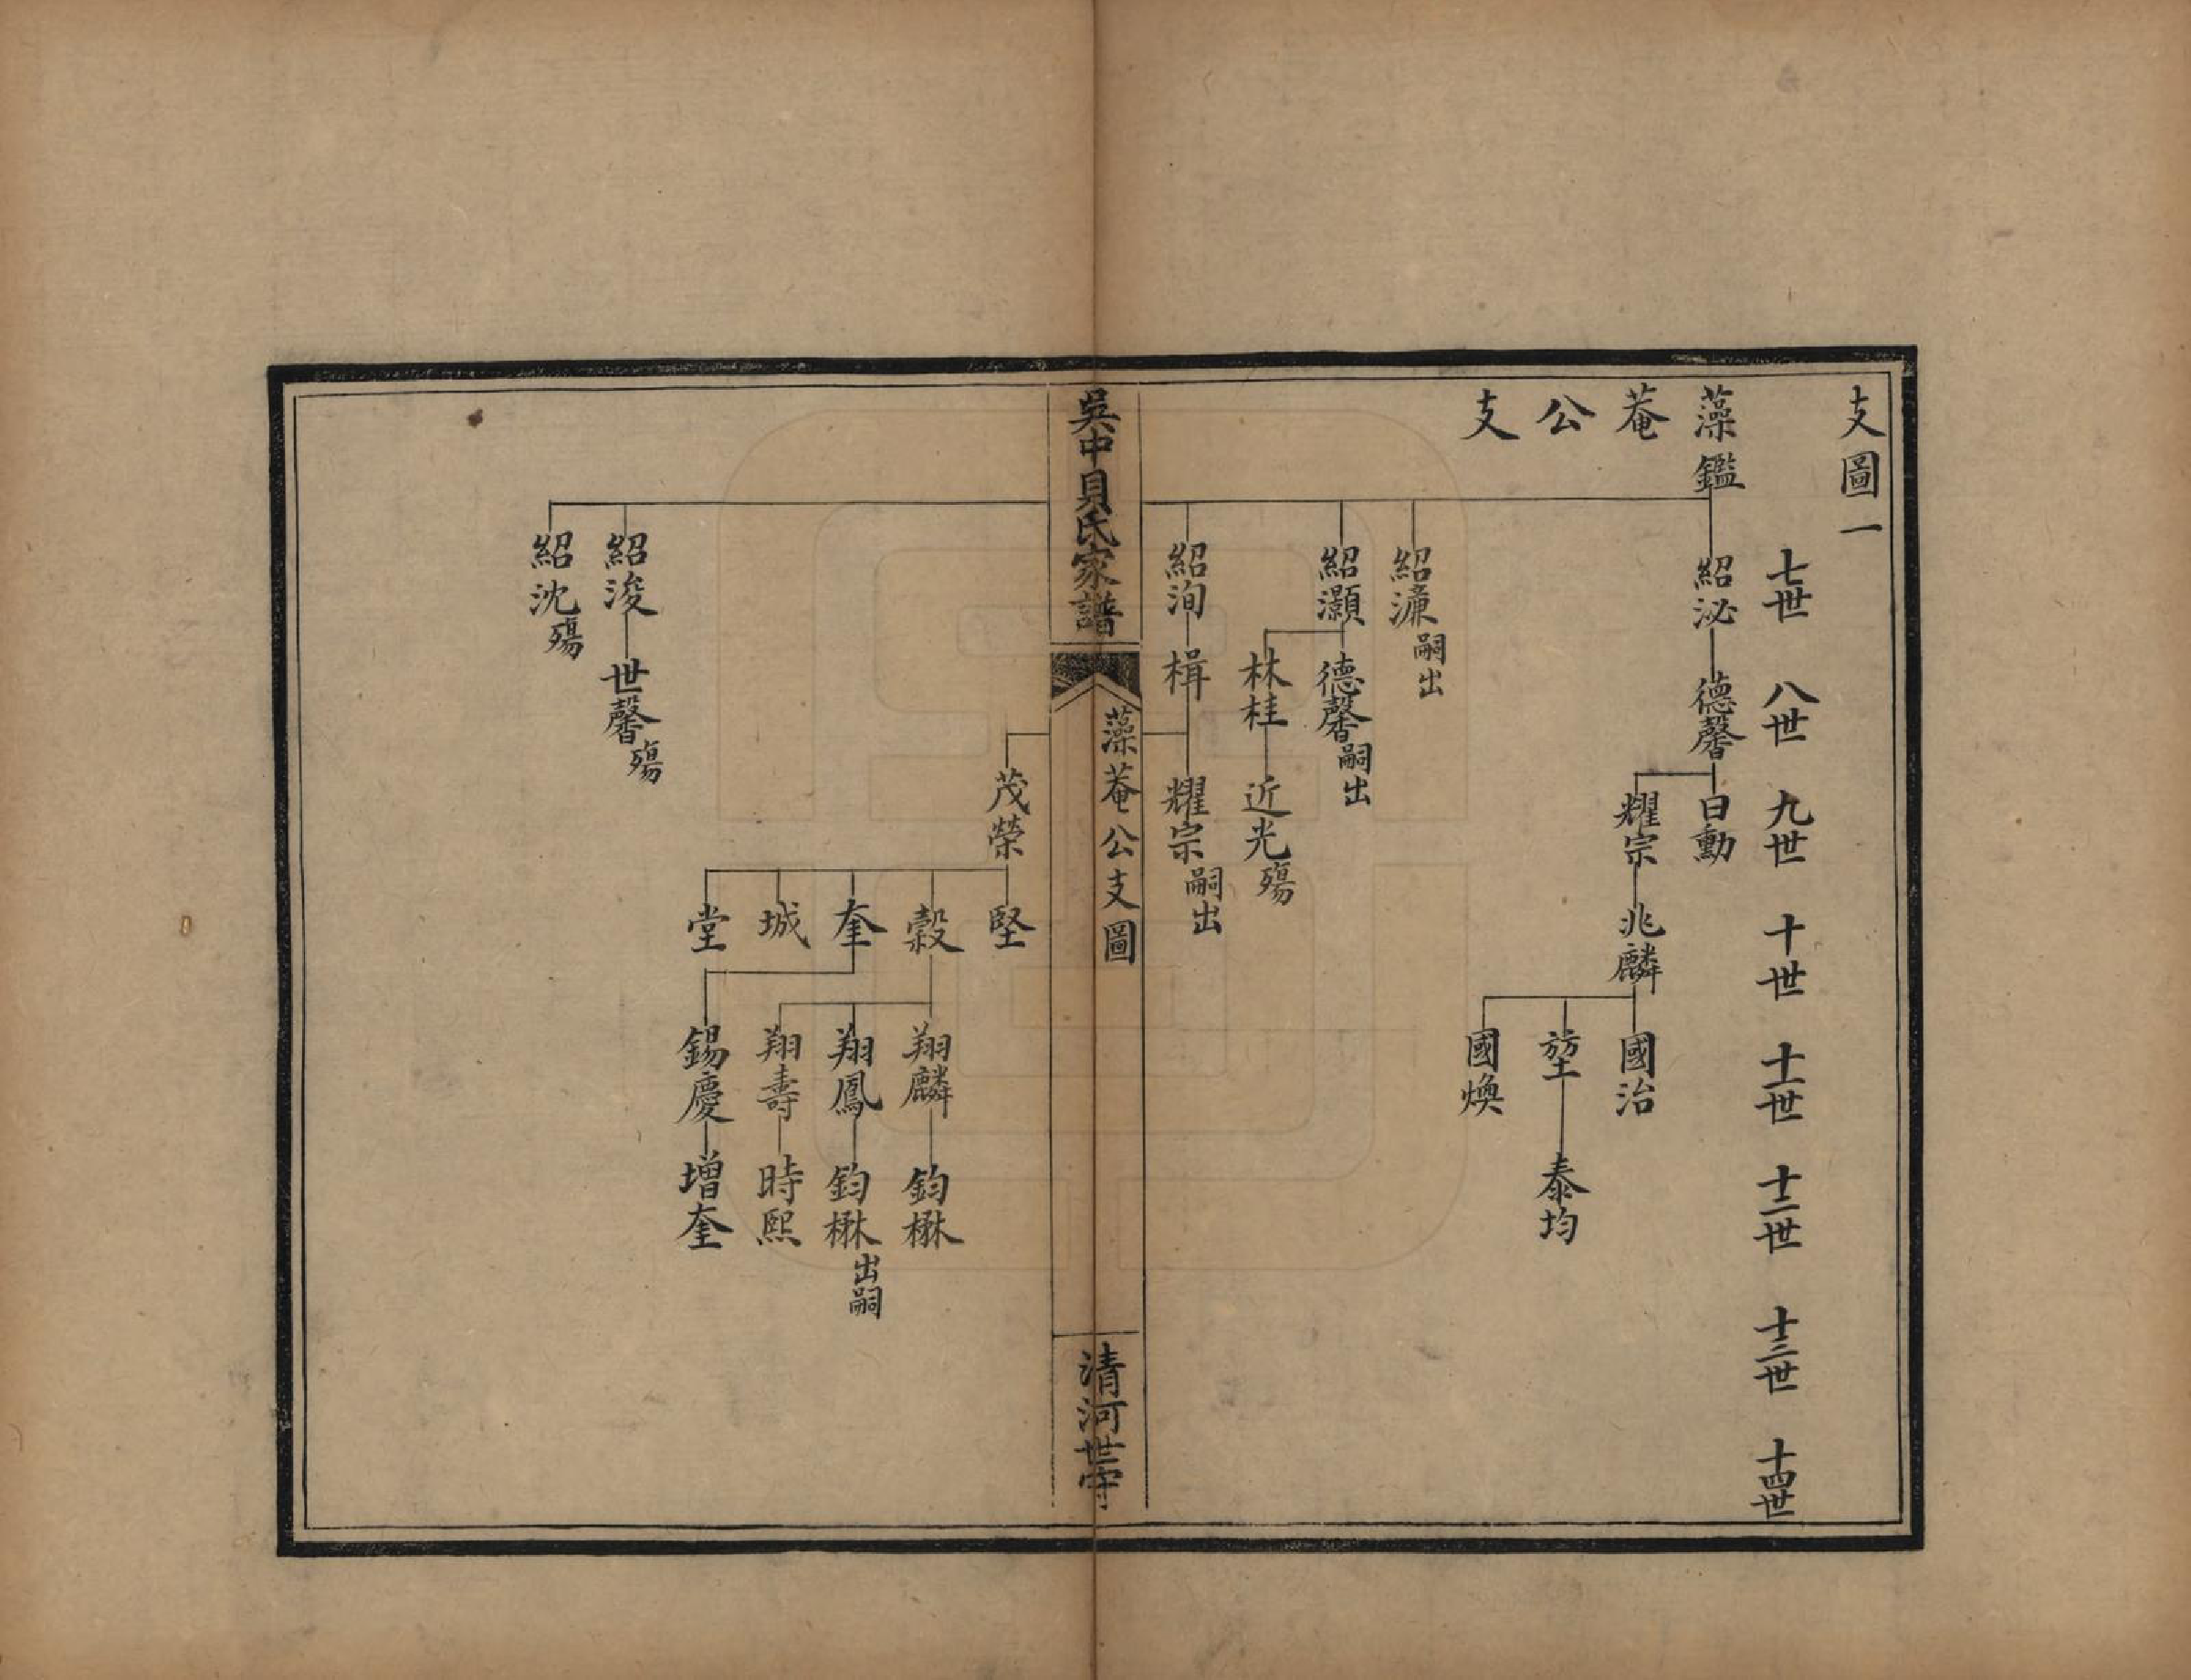 支圖一
七世 八世 九世 十世 十一世 十二世 十三世 十四世
藻菴公支
鑑
紹泌 德馨 日勳
耀宗 兆麟 國治
堃 泰均
國煥
紹濂 嗣出
紹灝 德馨 嗣出
林桂 近光 殤
紹洵 楫 耀宗 嗣出
吳中貝氏家譜
藻菴公支圖
清河世守
茂榮 堅
榖 翔麟 鈞楙
奎 翔鳳 鈞楙 出嗣
城 翔壽 時熙
堂 錫慶 增奎
紹浚 世馨 殤
紹沈 殤